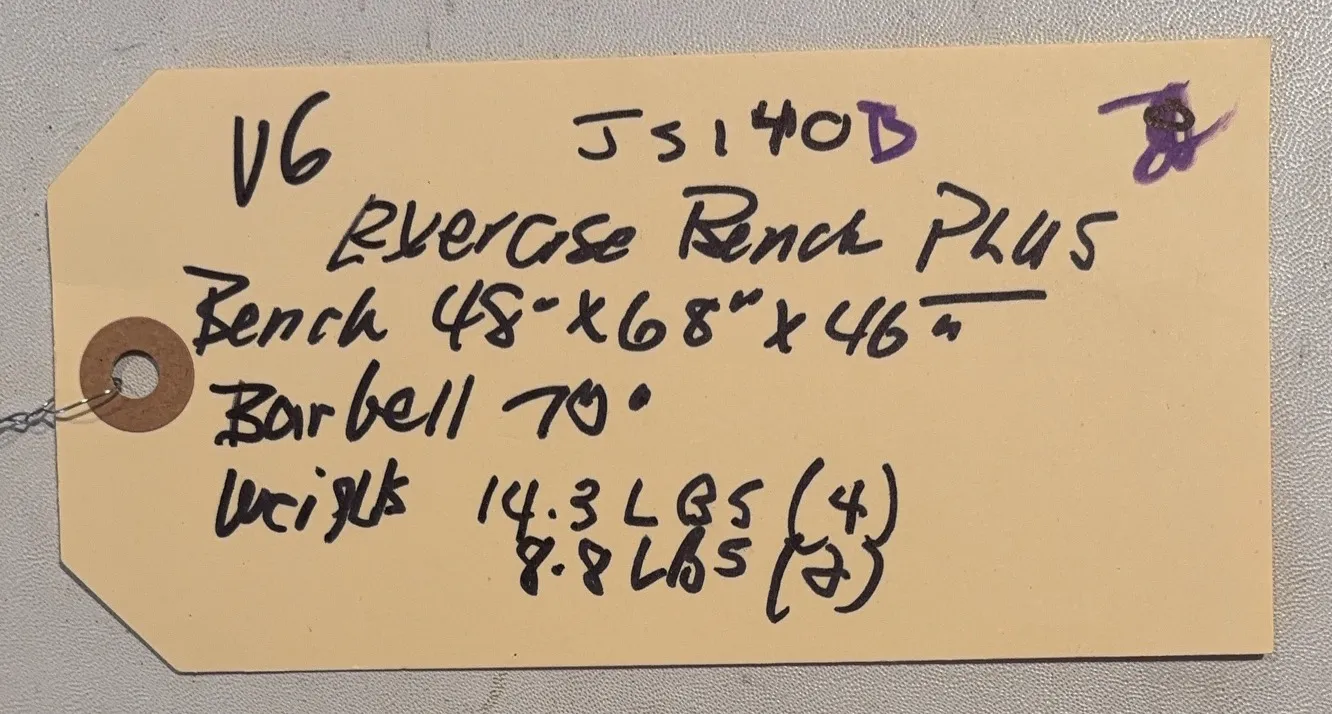 V6 JS140B
Exercise Bench PLUS
Bench 48" x 68" x 46"
Barbell 70"
Weights 14.3 LBS (4)
8.8 LBS (2)